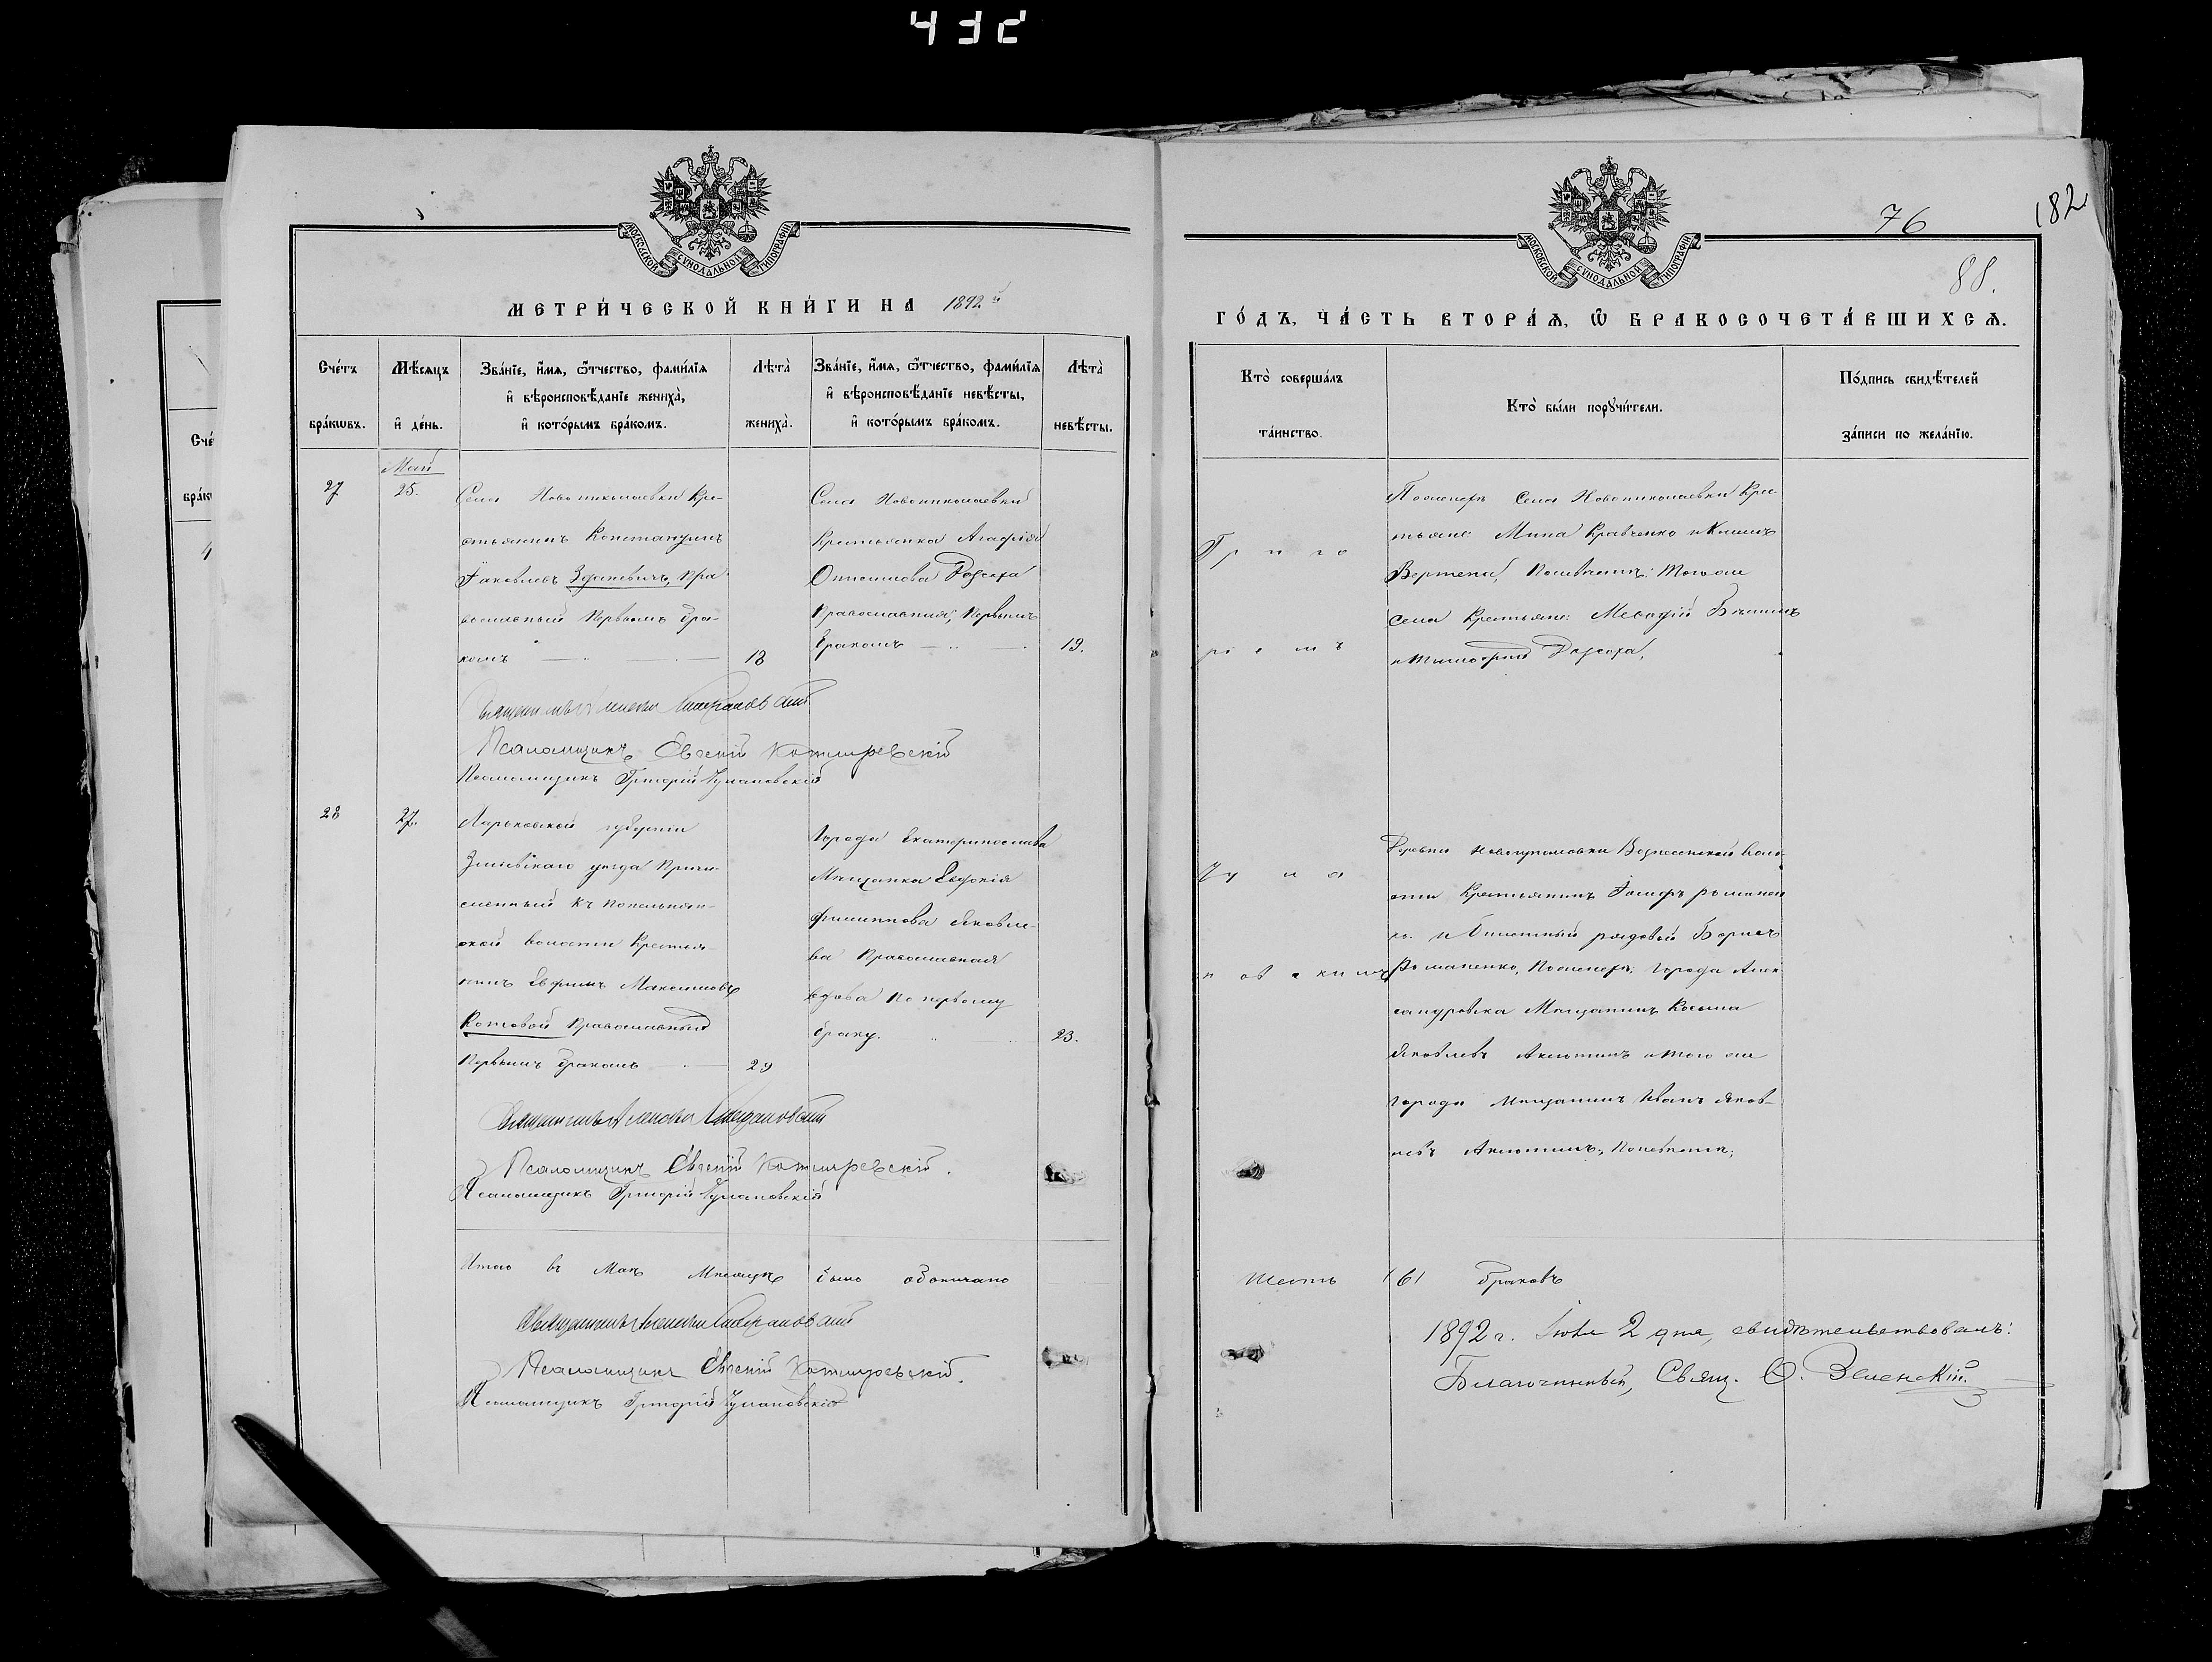 432
МОСКОВСКОЙ СѴНОДАЛЬНОЙ ТИПОГРАФІИ
МЕТРИ́ЧЕСКОЙ КНИ́ГИ НА 1892й
Сче́тъ бра́кѡвъ.
Мѣ́сяцъ и де́нь.
Зва́нїе, и́мя, ѻ҆́тчество, фами́лїя
и҆ вѣроисповѣ́данїе жениха̀,
и҆ кото́рымъ бра́комъ.
Лѣта̀ жениха̀.
Зва́нїе, и́мя, ѻ҆́тчество, фами́лїя
и҆ вѣроисповѣ́данїе невѣ́сты,
и҆ кото́рымъ бра́комъ.
Лѣта̀ невѣ́сты.
Май
27
25.
Села Новониколаевки Кре-
стьянинъ Константинъ
Іаковлевъ
Пра-
вославный первымъ бра-
комъ
18
Села Новониколаевки
Крестьянка Агафія
Онисимова
Православная, первымъ
бракомъ
19.
Священникъ
Псаломщикъ Евсевій
Псаломщикъ Григорій Чулановскій
28
27.
Харьковской губерніи
Зміевскаго уѣзда Припи-
сленный къ
ской волости Крестья-
нинъ Ефимъ Максимовъ
Котовой Православный
первымъ бракомъ
29
Города Екатеринослава
Мѣщанка Евдокія
Филиппова Яковле-
ва Православная
вдова по первому
браку.
23.
Священникъ
Псаломщикъ Евсевій
Псаломщикъ Григорій Чулановскій
Итого въ Маѣ Мѣсяцѣ было
Священникъ
Псаломщикъ Евсевій
Псаломщикъ Григорій Чулановскій
76
182
88.
МОСКОВСКОЙ СѴНОДАЛЬНОЙ ТИПОГРАФІИ
ГО́ДЪ, ЧА́СТЬ ВТОРА́Я, Ѽ БРАКОСОЧЕТА́ВШИХСЯ.
Кто̀ соверша́лъ та́инство.
Кто̀ бы́ли порꙋчи́тели.
По́дпись свидѣ́телей
за́писи по жела́нїю.
Г р и го
рі е м ъ
По женихѣ Села Новониколаевки Крес-
тьяне: Мина Кравченко и
по невѣстѣ: того же
села Крестьяне: Меѳодій
и Тимофей
Чу л а
н ов с кимъ
Деревни Вознесенской воло-
сти Крестьянинъ Іосифъ Романен
ко и билетный рядовой Борисъ
Романенко, по женихѣ; города Алек-
сандровска Мѣщанинъ Косьма
Яковлевъ и того же
города Мѣщанинъ Иванъ Яков-
левъ по невѣстѣ;
Шесть (6) браковъ
1892 г. Іюня 2 дня, свидѣтельствовалъ:
Благочинный, Свящ. Ѳ. Зеленскій.